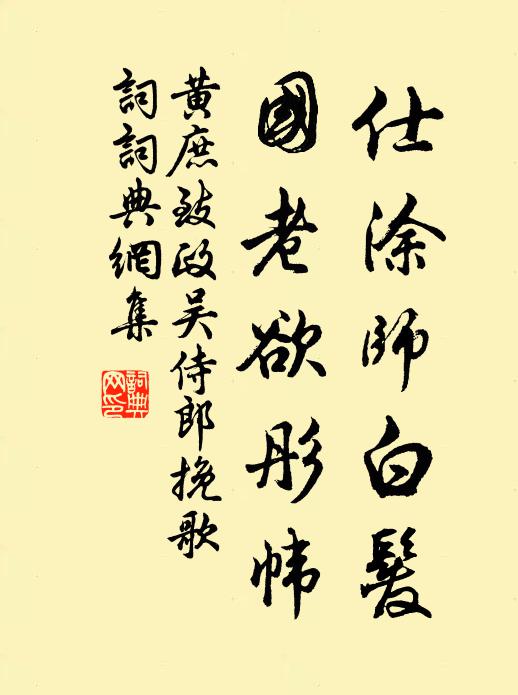 仕涂師白髮
國老欲彤幃
黃庶致政吴侍郎挽歌
詞詞典網集
詞典网印